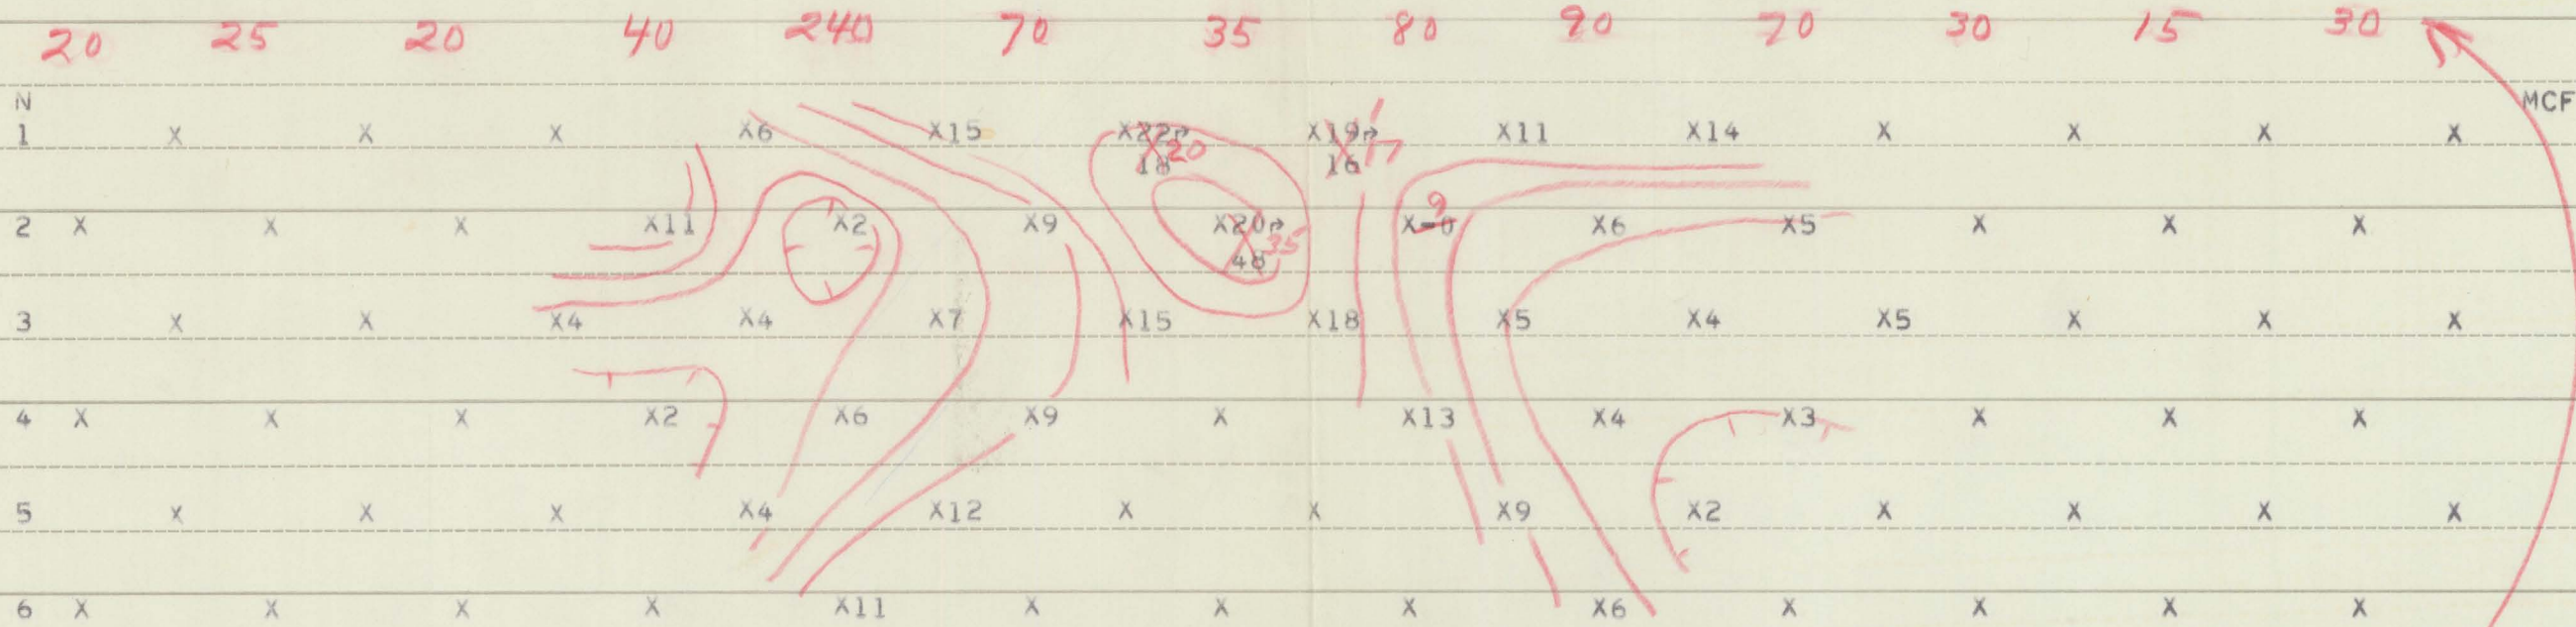 20 25 20 40 240 70 35 80 90 70 30 15 30
N MCF
1 X X X X6 X15 X22r X19r X11 X14 X X X X
20 17
18 16
2 X X X X11 X2 X9 X20r X-0 X6 X5 X X X
9
35
3 X X X4 X4 X7 X15 X18 X5 X4 X5 X X X
4 X X X X2 X6 X9 X X13 X4 X3 X X X
5 X X X X4 X12 X X X9 X2 X X X X
6 X X X X X11 X X X X6 X X X X